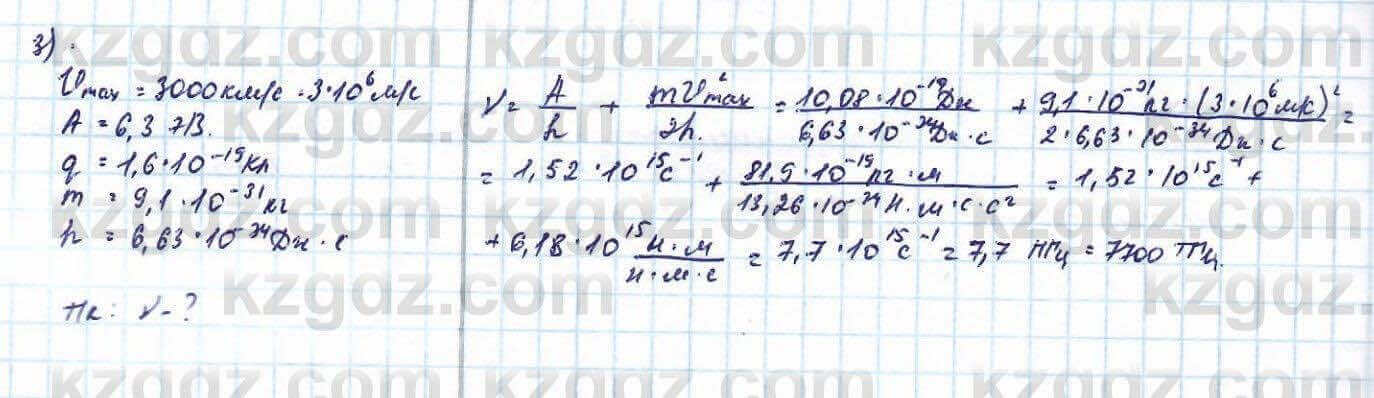 3).
V max = 3000 км/с = 3·10⁶ м/с
A = 6,3 эВ.
q = 1,6·10⁻¹⁹ Кл
m = 9,1·10⁻³¹ кг
h = 6,63·10⁻³⁴ Дж·с
Тк: ν-?
ν = A/h + mV²max/2h. = 10,08·10⁻¹⁹ Дж/6,63·10⁻³⁴ Дж·с + 9,1·10⁻³¹ кг·(3·10⁶ м/с)²/2·6,63·10⁻³⁴ Дж·с =
= 1,52·10¹⁵ с⁻¹ + 81,9·10⁻¹⁹ кг·м/13,26·10⁻³⁴ Н·м·с·с² = 1,52·10¹⁵ с⁻¹ +
+ 6,18·10¹⁵ Н·м/Н·м·с = 7,7·10¹⁵ с⁻¹ = 7,7 ПГц = 7700 ТГц.
kzgdz.com kzgdz.com kzgdz.com
kzgdz.com kzgdz.com kzgdz.com
kzgdz.com kzgdz.com kzgdz.com
kzgdz.com kzgdz.com kzgdz.com